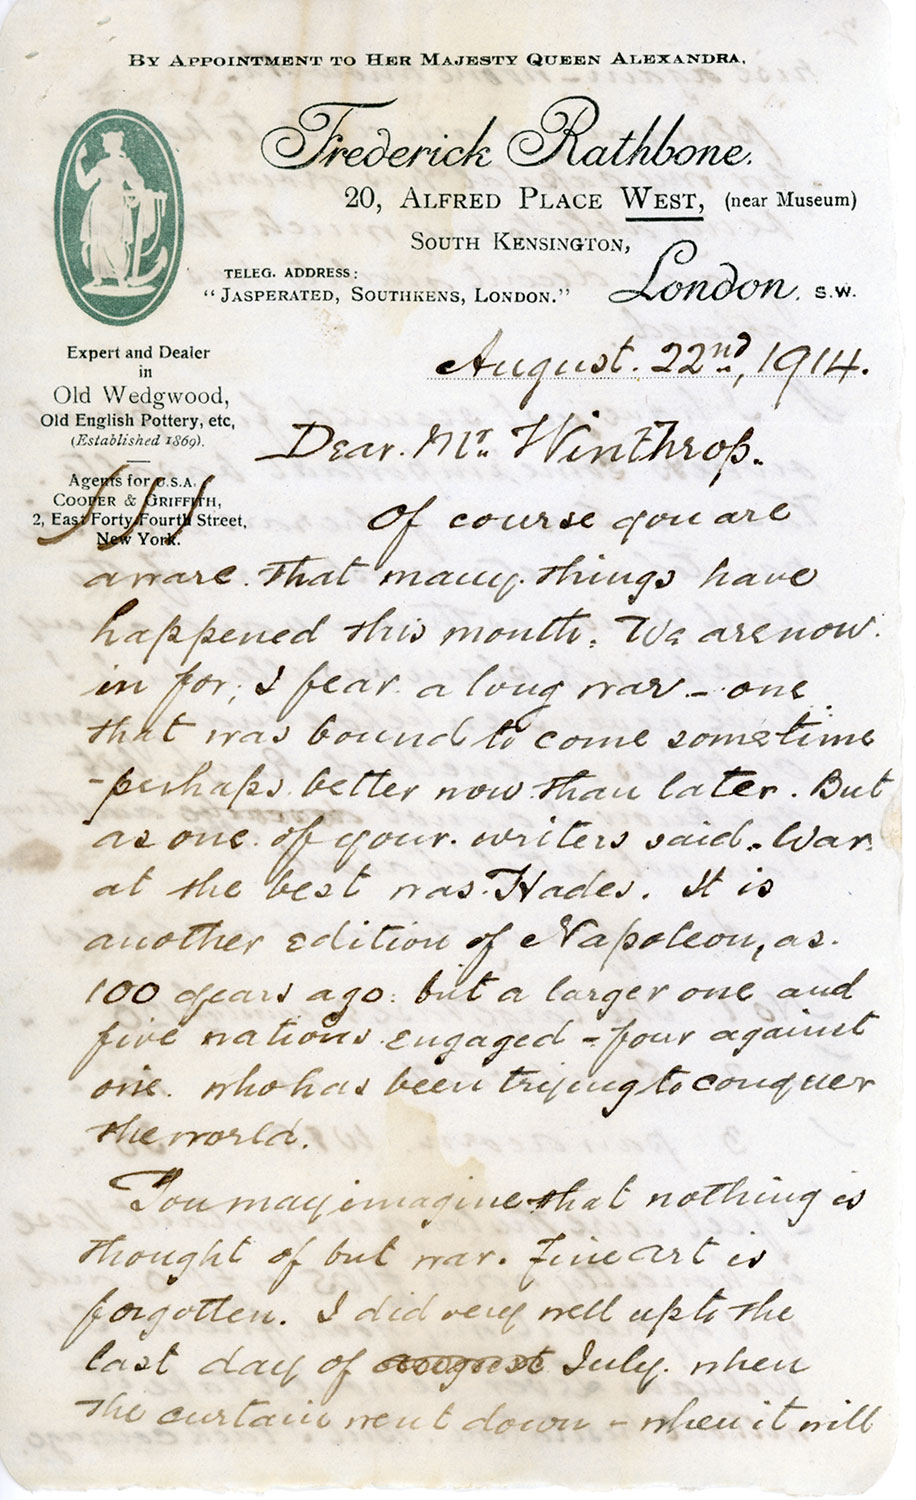 By Appointment to Her Majesty Queen Alexandra.
Frederick Rathbone.
20, Alfred Place West, (near Museum)
South Kensington,
TELEG. ADDRESS:
"Jasperated, Southkens, London."
London, S.W.
Expert and Dealer
in
Old Wedgwood,
Old English Pottery, etc,
(Established 1869).
Agents for U.S.A.
Cooper & Griffith,
2, East Forty Fourth Street,
New York.
August. 22nd, 1914.
Dear. Mr. Winthrop.
Of course you are
aware. that many things have
happened this month. We are now
in for, I fear a long war - one
that was bound to come sometime
- perhaps better now than later. But
as one of your writers said. War
at the best was Hades. It is
another edition of Napoleon, as
100 years ago: but a larger one and
five nations engaged - four against
one. who has been trying to conquer
the world.
You may imagine that nothing is
thought of but war. Fine art is
forgotten. I did very well up to the
last day of august July. when
the curtain went down - when it will